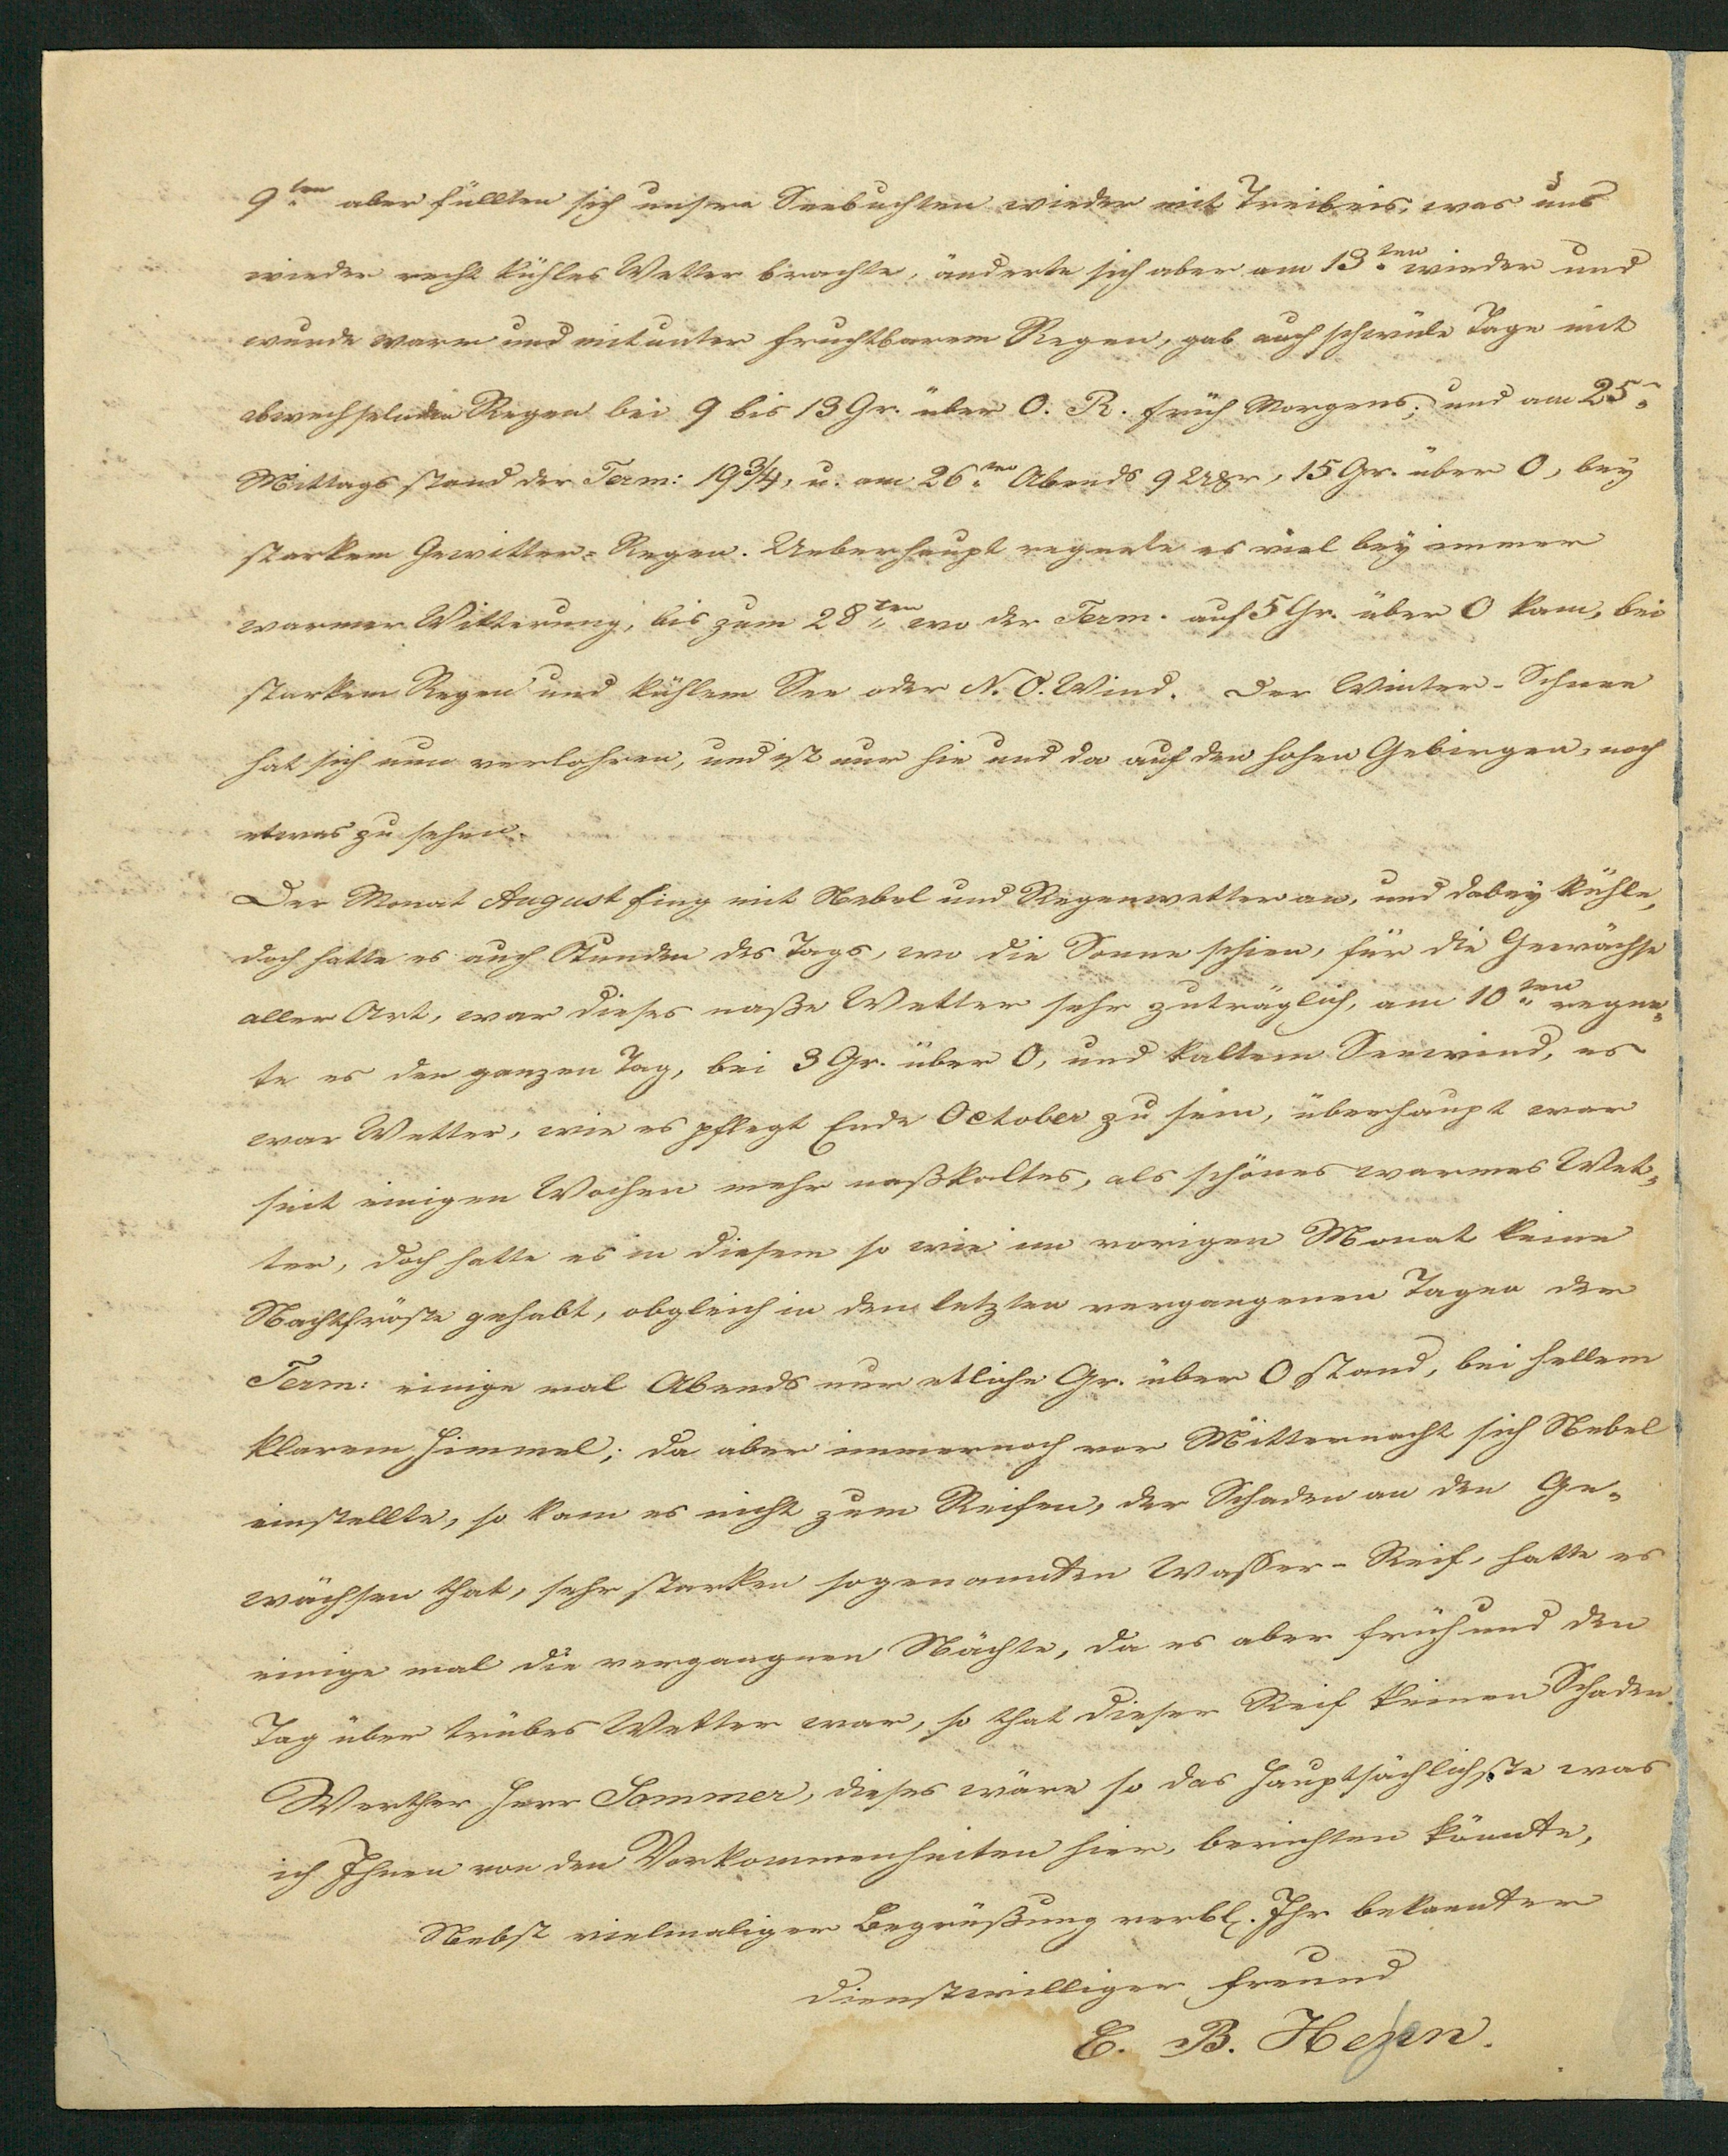 9ten aber füllten sich unsere Seebuchten wieder mit Treibeis, was uns
wieder recht kühles Wetter brachte, änderte sich aber am 13ten wieder und
wurde warm und mitunter fruchtbarem Regen, gab auch schwüle Tage mit
abwechselnden Regen bei 9 bis 13 Gr. über 0. R. früh Morgens; und am 25
Mittags stand der Term: 19 3/4, u. am 26ten Abends 9 Uhr, 15 Gr. über 0, bey
starkem Gewitter-Regen. Ueberhaupt regnete es viel bey immer
warmer Witterung, bis zum 28ten wo der Term. auf 5 Gr. über 0 kam, bei
starkem Regen und kühlem See oder N. O. Wind. Der Winter-Schnee
hat sich nun verlohren, und ist nur hie und da auf den hohen Gebirgen, noch
etwas zu sehen.
Der Monat August fing mit Nebel und Regenwetter an, und dabey kühle,
doch hatte es auch Stunden des Tags, wo die Sonne schien, für die Gewächse
aller Art, war dieses naße Wetter sehr zuträglich, am 10ten regne-
te es den ganzen Tag, bei 3 Gr. über 0, und kaltem Seewind, es
war Wetter, wie es pflegt Ende October zu sein, überhaupt war
seit einigen Wochen mehr naßkaltes, als schönes warmes Wet-
ter, doch hatte es in diesem so wie im vorigen Monat keine
Nachtfröste gehabt, obgleich in den letzten vergangenen Tagen der
Term: einige mal Abends nur etliche Gr. über 0 stand, bei hellem
klarem Himmel; da aber immernoch vor Mitternacht sich Nebel
einstellte, so kam es nicht zum Reifen, der Schaden an den Ge-
wächsen that, sehr starken sogenannten Wasser-Reif, hatte es
einige mal die vergangnen Nächte, da es aber früh und den
Tag über trübes Wetter war, so that dieser Reif keinen Schaden.
Werther Herr Sommer, dieses wäre so das Hauptsächlichste was
ich Ihnen von den Vorkommenheiten hier, berichten könnte,
Nebst vielmaliger Begrüßung verbl. Ihr bekannter
dienstwilliger Freund
E. B. Henn.